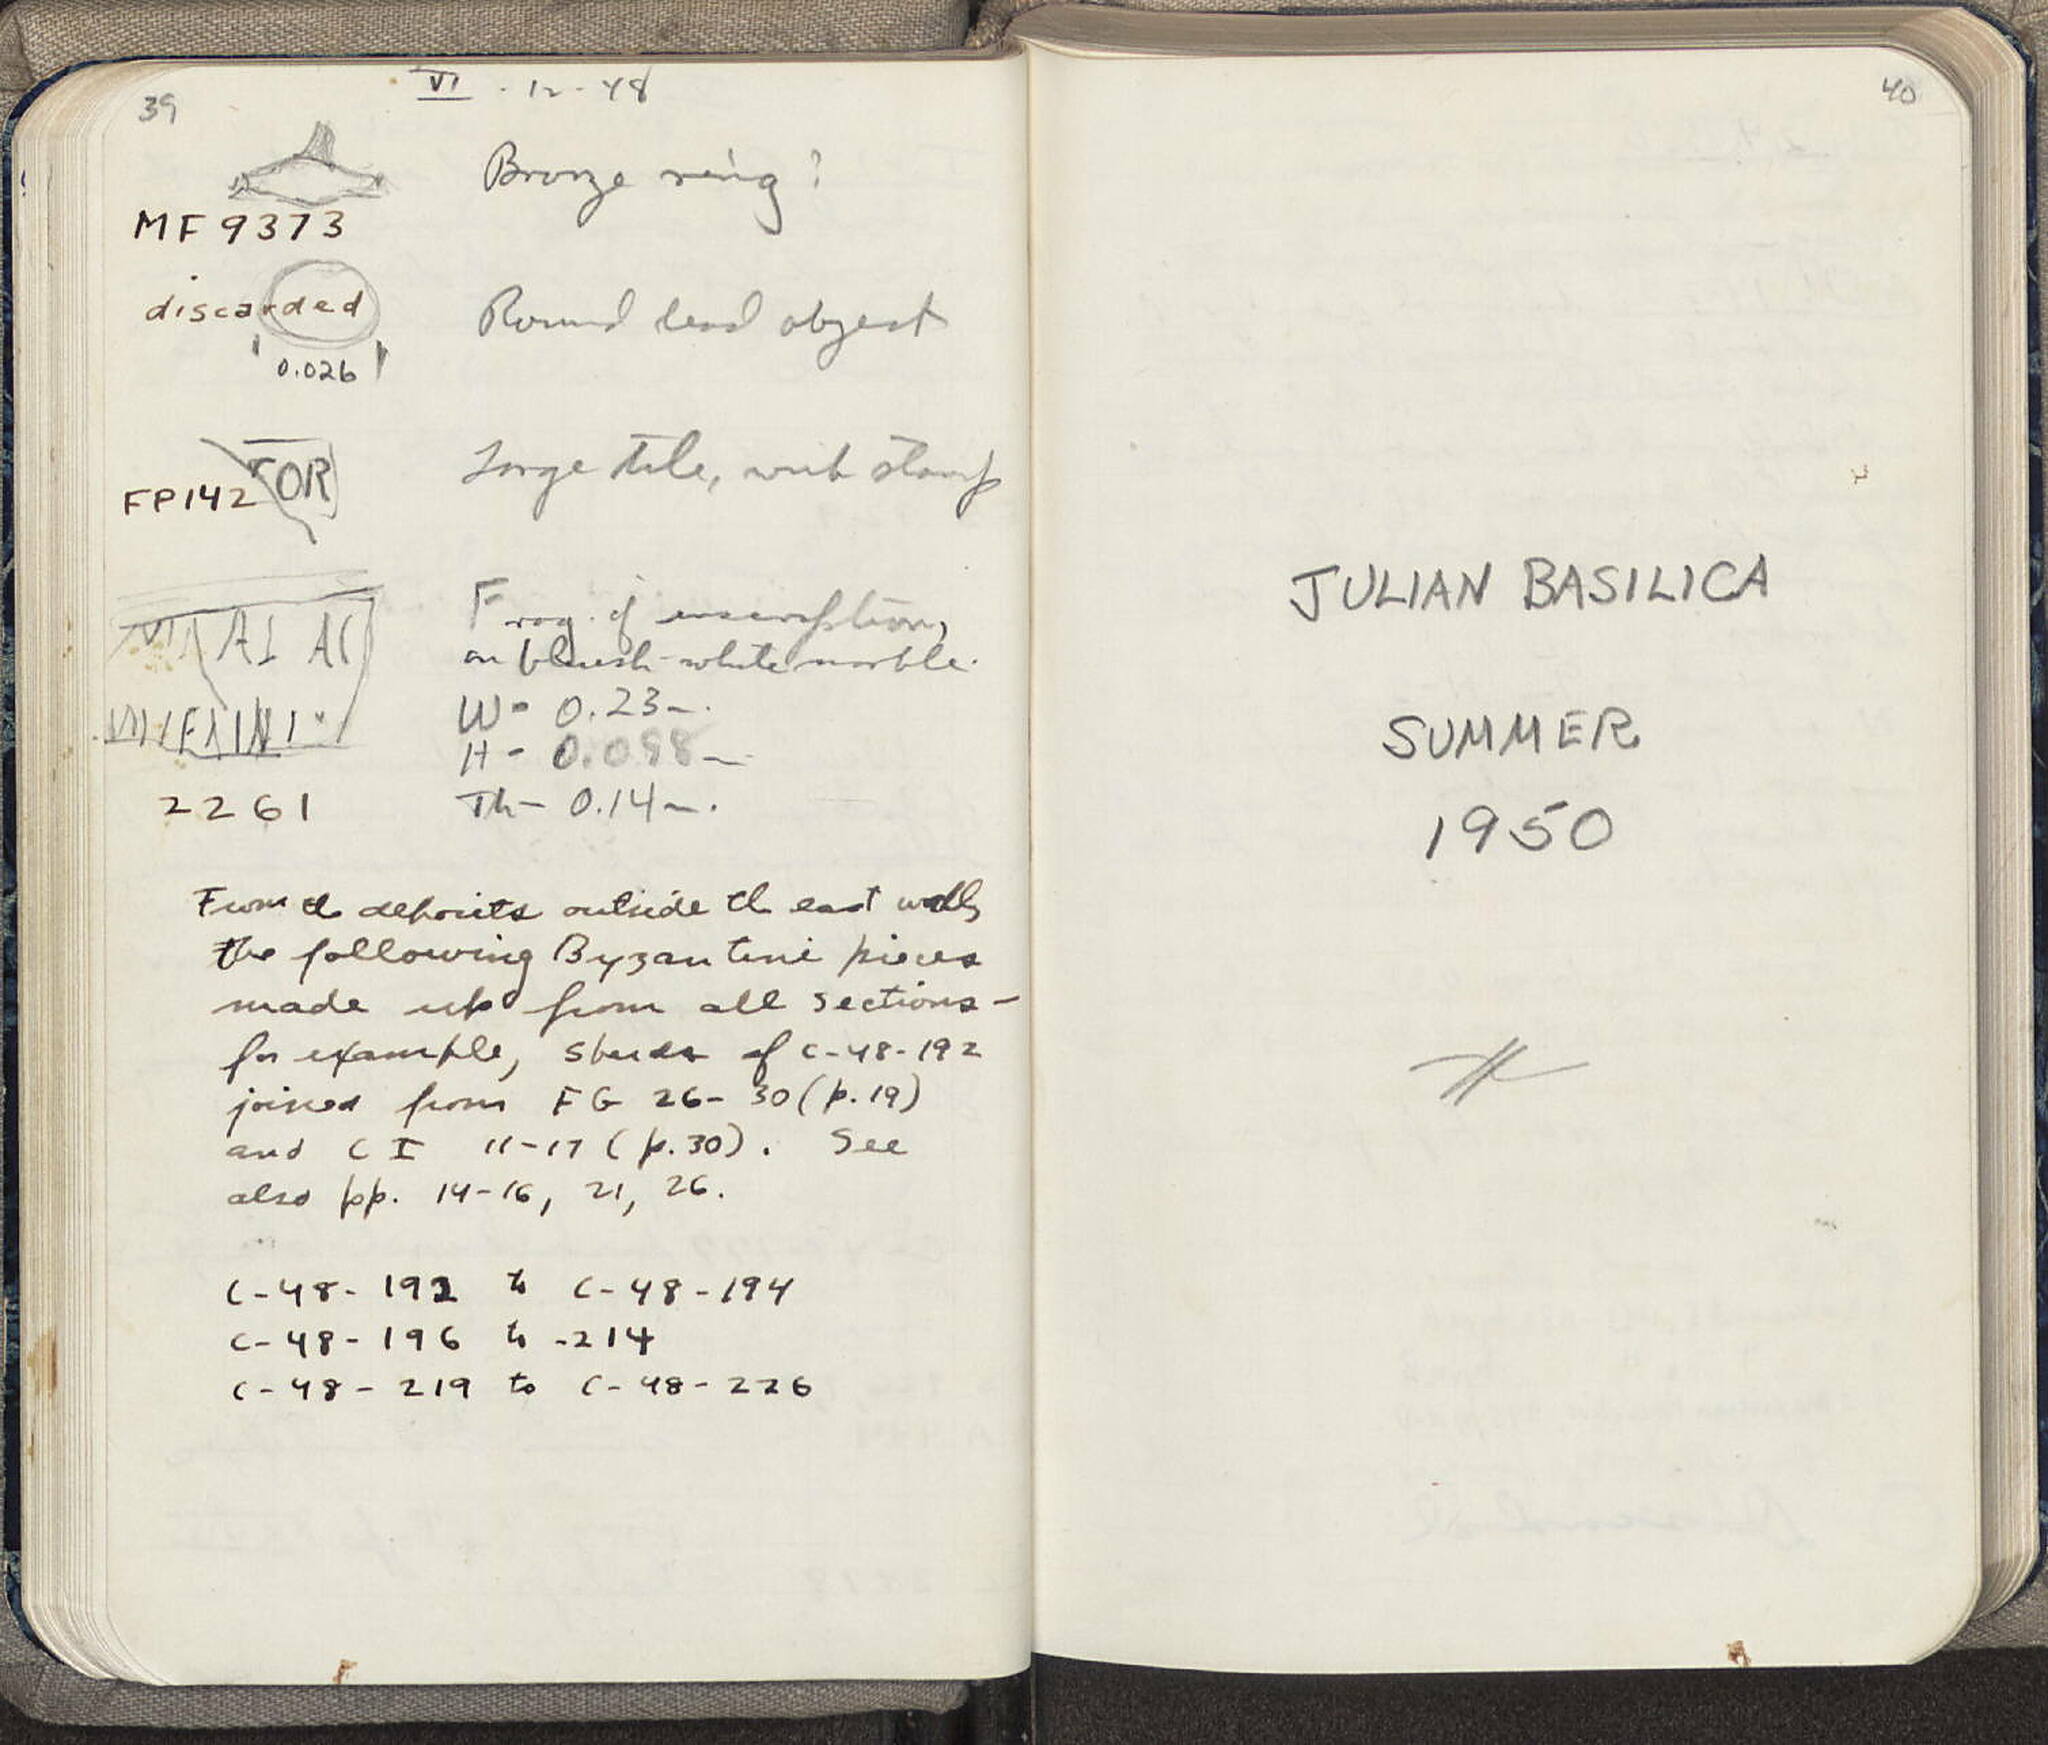 39
VI - 12 - 48
Bronze ring?
MF 9373
discarded
Round lead object
0.026
Large tile, with stamp
TOR
FP142
Frag. of inscription,
on bluish-white marble.
W - 0.23 m.
H - 0.098 m
Th - 0.14 m.
2261
From the deposits outside the east wall,
the following Byzantine pieces
made up from all sections -
for example, sherds of C-48-192
joined from FG 26-30 (p. 19)
and CI 11-17 (p. 30). See
also pp. 14-16, 21, 26.
C-48-192 to C-48-194
C-48-196 to -214
C-48-219 to C-48-226
40
JULIAN BASILICA
SUMMER
1950